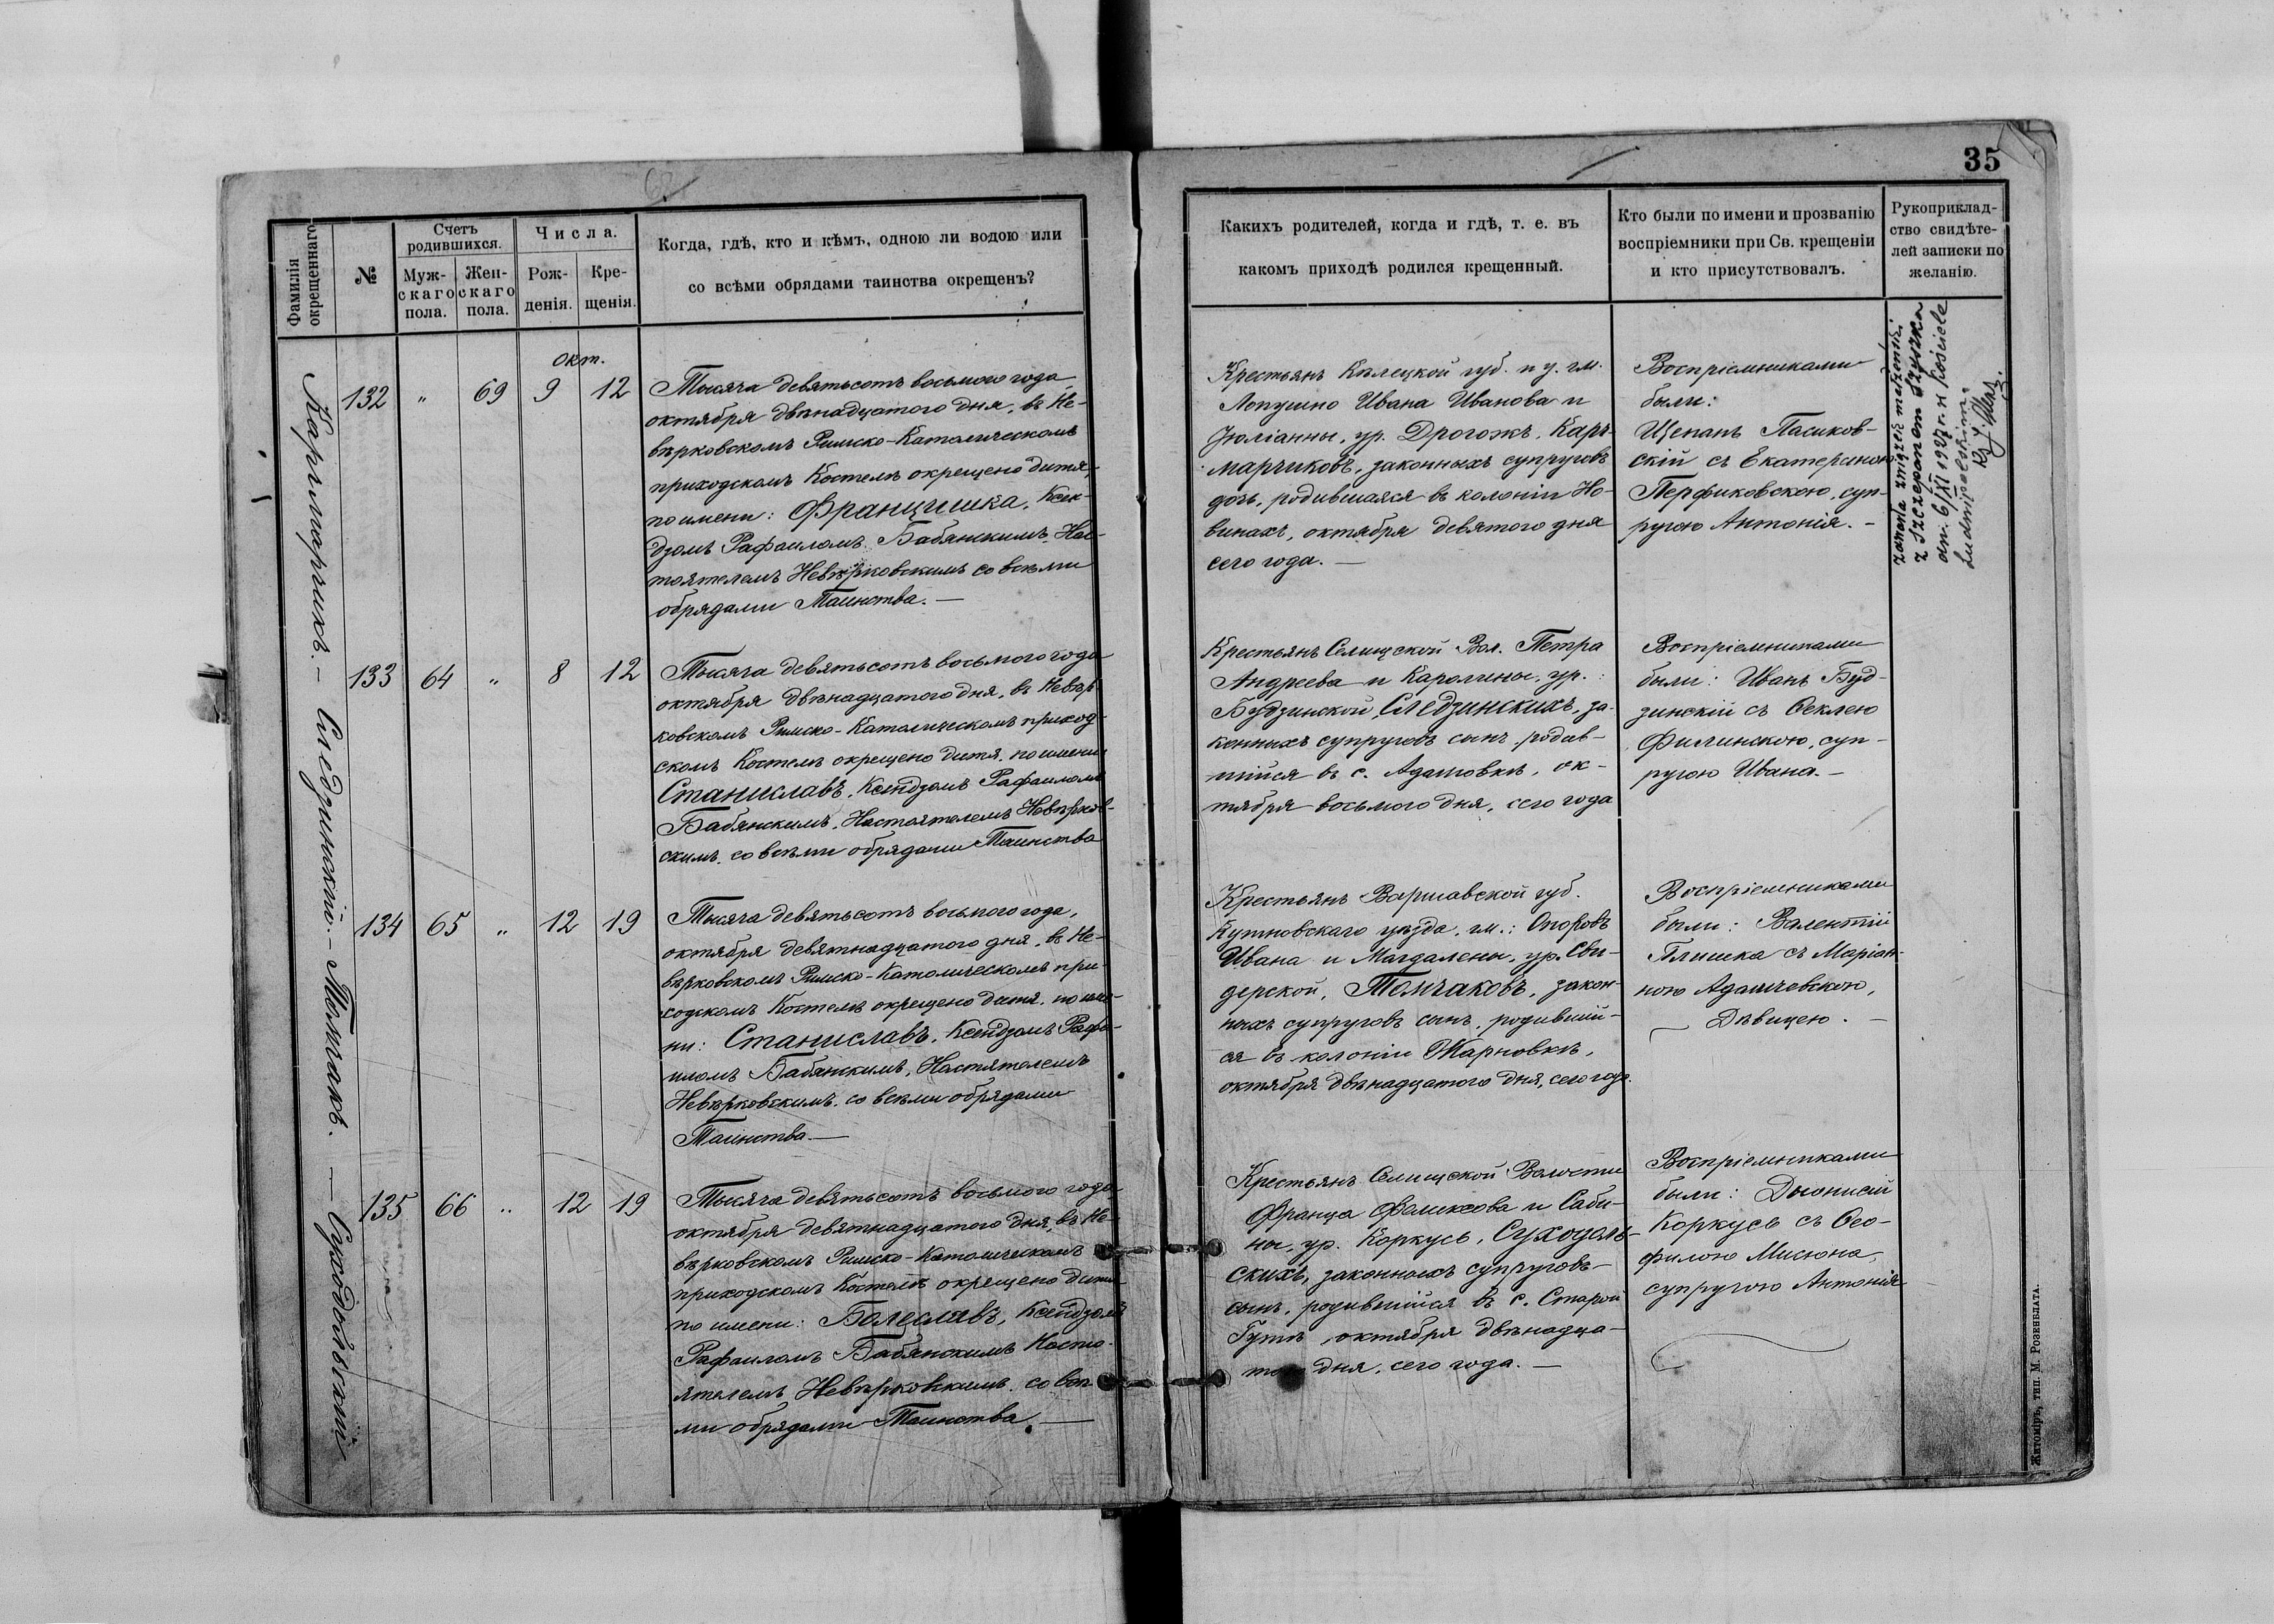 35
Фамилія
окрещеннаго
№
Счетъ
родившихся.
Муж-
скаго
пола.
Жен-
скаго
пола.
Числа.
Рож-
денія.
Кре-
щенія.
Когда, гдѣ, кто и кѣмъ, одною ли водою или
со всѣми обрядами таинства окрещенъ?
Какихъ родителей, когда и гдѣ, т. е. въ
какомъ приходѣ родился крещенный.
Кто были по имени и прозванію
воспріемники при Св. крещеніи
и кто присутствовалъ.
Рукоприклад-
ство свидѣте-
лей записки по
желанію.
окт.
132 " 69 9 12
Тысяча девятьсотъ восьмого года,
октября двѣнадцатого дня, въ Не-
вѣрковскомъ Римско-Католическомъ
приходскомъ Костелѣ окрещено дитя,
по имени: Францишка, Ксен-
дзомъ Рафаиломъ Бабянскимъ, Нас-
тоятелемъ Невѣрковскимъ со всѣми
обрядами Таинства. —
Крестьянъ Кѣлецкой губ. и у. гм.
Лопушно Ивана Иванова и
Юліанны, ур. Дрогожъ, Карч-
марчиковъ, законныхъ супруговъ
дочь, родившаяся въ колоніи Но-
винахъ, октября девятого дня
сего года. —
Воспріемниками
были:
Щепанъ Пасиков-
скій съ Екатериною
Перфиковскою, суп-
ругою Антонія. —
zawarła związek małżeński
z Szczepanem Szyszka
dn. 6/XI 1927 r. w Kościele
Ludwipolskim.
133 64 " 8 12
Тысяча девятьсотъ восьмого года
октября двѣнадцатого дня, въ Невѣр-
ковскомъ Римско-Католическомъ приход-
скомъ Костелѣ окрещено дитя, по имени
Станиславъ, Ксендзомъ Рафаиломъ
Бабянскимъ, Настоятелемъ Невѣрков-
скимъ, со всѣми обрядами Таинства
Крестьянъ Селищской Вол. Петра
Андреева и Каролины, ур.:
Будзинской, Следзинскихъ, за-
конныхъ супруговъ сынъ, родив-
шійся въ с. Адамовкѣ, ок-
тября восьмого дня, сего года
Воспріемниками
были: Иванъ Буд-
зинскій съ Ѳеклею
Филинскою, суп-
ругою Ивана. —
134 65 " 12 19
Тысяча девятьсотъ восьмого года,
октября девятнадцатого дня, въ Не-
вѣрковскомъ Римско-Католическомъ при-
ходскомъ Костелѣ окрещено дитя, по име-
ни: Станиславъ, Ксендзомъ Рафа-
иломъ Бабянскимъ, Настоятелемъ
Невѣрковскимъ, со всѣми обрядами
Таинства. —
Крестьянъ Варшавской губ.
Кутновскаго уѣзда, гм.: Опоровъ
Ивана и Магдалены, ур. Сви-
дерской, Томчаковъ, закон-
ныхъ супруговъ сынъ, родивший-
ся въ колоніи Жарновкѣ,
октября двѣнадцатого дня, сего года.
Воспріемниками
были: Валентій
Плишка съ Маріан-
ною Адамчевскою,
— Дѣвицею. —
135 66 " 12 19
Тысяча девятьсотъ восьмого года
октября девятнадцатого дня, въ Не-
вѣрковскомъ Римско-Католическомъ
приходскомъ Костелѣ окрещено дитя
по имени: Болеславъ, Ксендзомъ
Рафаиломъ Бабянскимъ Насто-
ятелемъ Невѣрковскимъ, со всѣ-
ми обрядами Таинства. —
Крестьянъ Селищской Волости
Франца Феликсова и Саби-
ны, ур. Коркусь, Суходоль-
скихъ, законныхъ супруговъ
сынъ, родившійся въ с. Старой
Гутѣ, октября двѣнадца-
дня, сего года. —
Воспріемниками
были: Діонисій
Коркусь съ Ѳео-
филою Мисюна,
супругою Антонія
Карчмарчикъ. — Следзинскій. — Томчакъ. — Суходольскій
Житоміръ, тип. М. Розенблата.